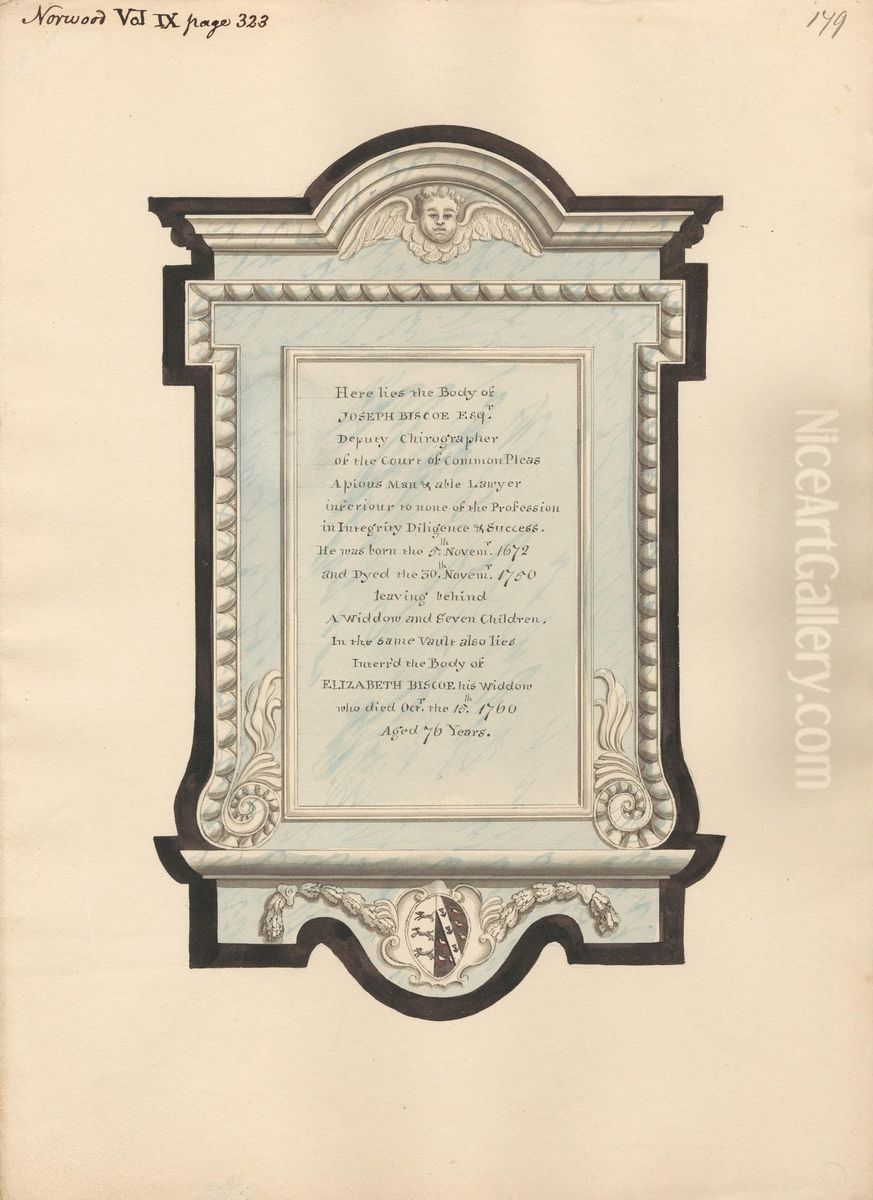 Norwood Vol IX page 323
179
Here lies the Body of
JOSEPH BISCOE Esqr.
Deputy Chirographer
of the Court of Common Pleas
A pious Man & able Lawyer
inferiour to none of the Profession
in Integrity Diligence & Success.
He was born the 5.th Novemr. 1672
and Dyed the 30.th Novemr. 1750
leaving behind
A Widdow and Seven Children.
In the same Vault also lies
Interr'd the Body of
ELIZABETH BISCOE his Widdow
who died Octr. the 15.th 1760
Aged 76 Years.
NiceArtGallery.com